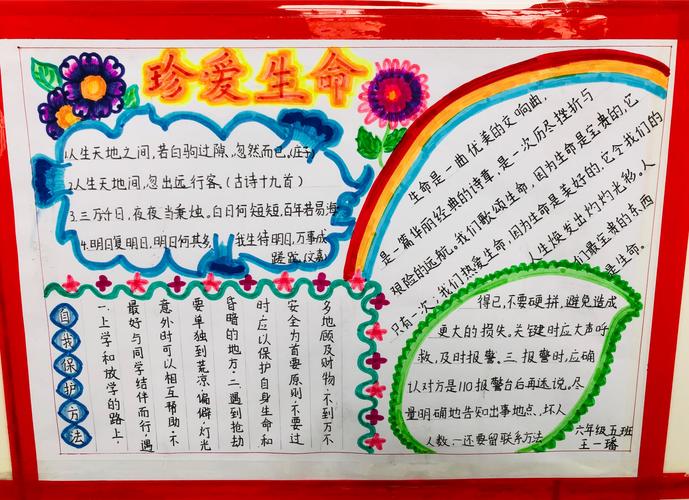 珍爱生命
1.人生天地之间,若白驹过隙,忽然而已,(庄子)
2.人生天地间,忽如远行客、(古诗十九首)
3.三万千日,夜夜当秉烛。白日何短短,百年苦易满
4.明日复明日,明日何其多 我生待明日,万事成
蹉跎、(文嘉)
生命是一曲优美的交响曲,
是一篇华丽经典的诗章,是一次历尽挫折与
艰险的远航。我们歌颂生命,因为生命是宝贵的,它
只有一次;我们热爱生命,因为生命是美好的,它令我们的
人生焕发出灼灼光彩。人
们最宝贵的东西
是生命。
自我保护方法
一、上学和放学的路上,
最好与同学结伴而行,遇
意外时可以相互帮助,不
要单独到荒凉、偏僻、灯光
昏暗的地方。二、遇到抢劫
时,应以保护自身生命和
安全为首要原则,不要过
多地顾及财物,不到万不
得已,不要硬拼,避免造成
更大的损失。关键时应大声呼
救,及时报警。三、报警时,应确
认对方是110报警台后再述说。尽
量明确地告知出事地点、坏人
人数、还要留联系方法
六年级五班
王一璠